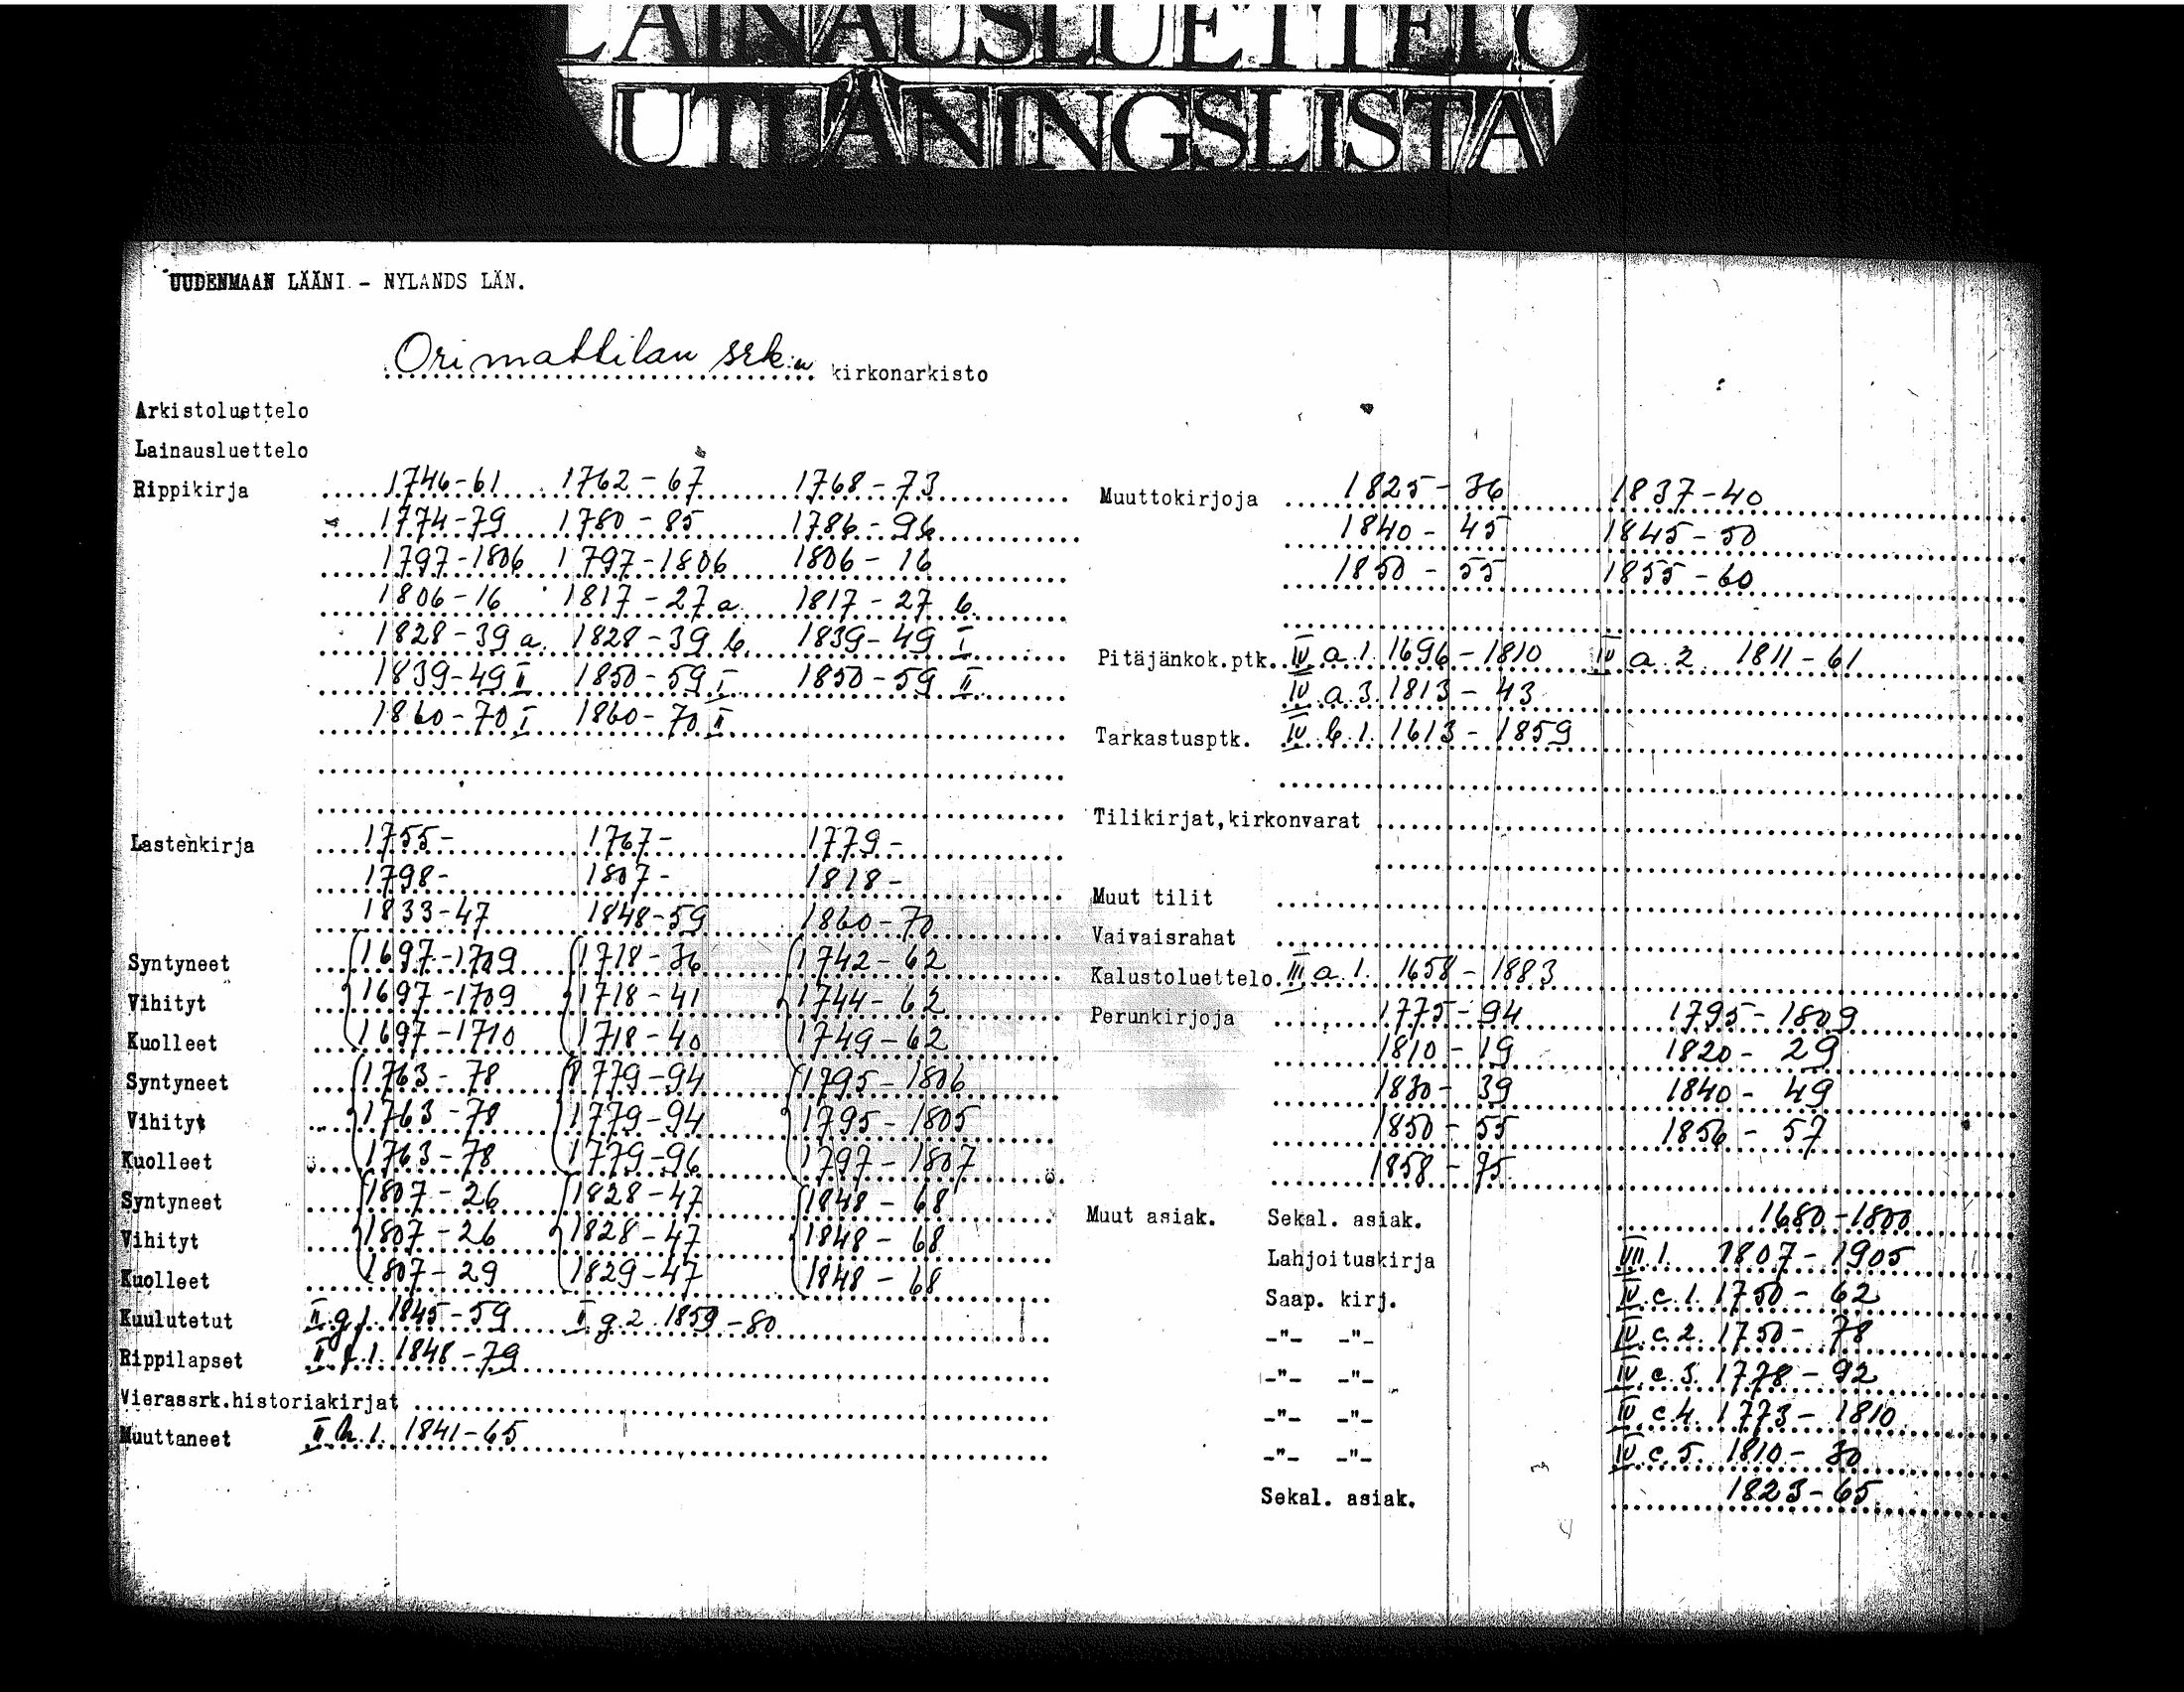 LAINAUSLUETTELO
UTLÅNINGSLISTA
UUDENMAAN LÄÄNI - NYLANDS LÄN.
Orimattilan srk:n kirkonarkisto
Arkistoluettelo
Lainausluettelo
Rippikirja 1746-61 1762-67 1768-73
1774-79 1780-85 1786-96
1797-1806 1797-1806 1806-16
1806-16 1817-27 a. 1817-27 b.
1828-39 a. 1828-39 b. 1839-49 I
1839-49 II 1850-59 I 1850-59 II
1860-70 I 1860-70 II
Lastenkirja 1755- 1767- 1779-
1798- 1807- 1818-
1833-47 1848-59 1860-70
Syntyneet 1697-1709 1718-36 1742-62
Vihityt 1697-1709 1718-41 1744-62
Kuolleet 1697-1710 1718-40 1749-62
Syntyneet 1763-78 1779-94 1795-1806
Vihityt 1763-78 1779-94 1795-1805
Kuolleet 1763-78 1779-96 1797-1807
Syntyneet 1807-26 1828-47 1848-68
Vihityt 1807-26 1828-47 1848-68
Kuolleet 1807-29 1829-47 1848-68
Kuulutetut II g.1. 1845-59 II g.2. 1859-80
Rippilapset II f.1. 1848-79
Vierassrk.historiakirjat
Muuttaneet II h.1. 1841-65
Muuttokirjoja 1825-36 1837-40
1840-45 1845-50
1850-55 1855-60
Pitäjänkok.ptk. IV a.1. 1696-1810 IV a.2. 1811-61
IV a.3. 1813-43
Tarkastusptk. IV b.1. 1613-1859
Tilikirjat,kirkonvarat
Muut tilit
Vaivaisrahat
Kalustoluettelo III a.1. 1658-1883
Perunkirjoja 1775-94 1795-1809
1810-19 1820-29
1830-39 1840-49
1850-55 1856-57
1858-75
Muut asiak. Sekal. asiak. 1680-1800
Lahjoituskirja VIII 1. 1807-1905
Saap. kirj. IV c.1. 1750-62
-"- -"- IV c.2. 1750-78
-"- -"- IV c.3. 1778-92
-"- -"- IV c.4. 1773-1810
-"- -"- IV c.5. 1810-30
Sekal. asiak. 1823-65